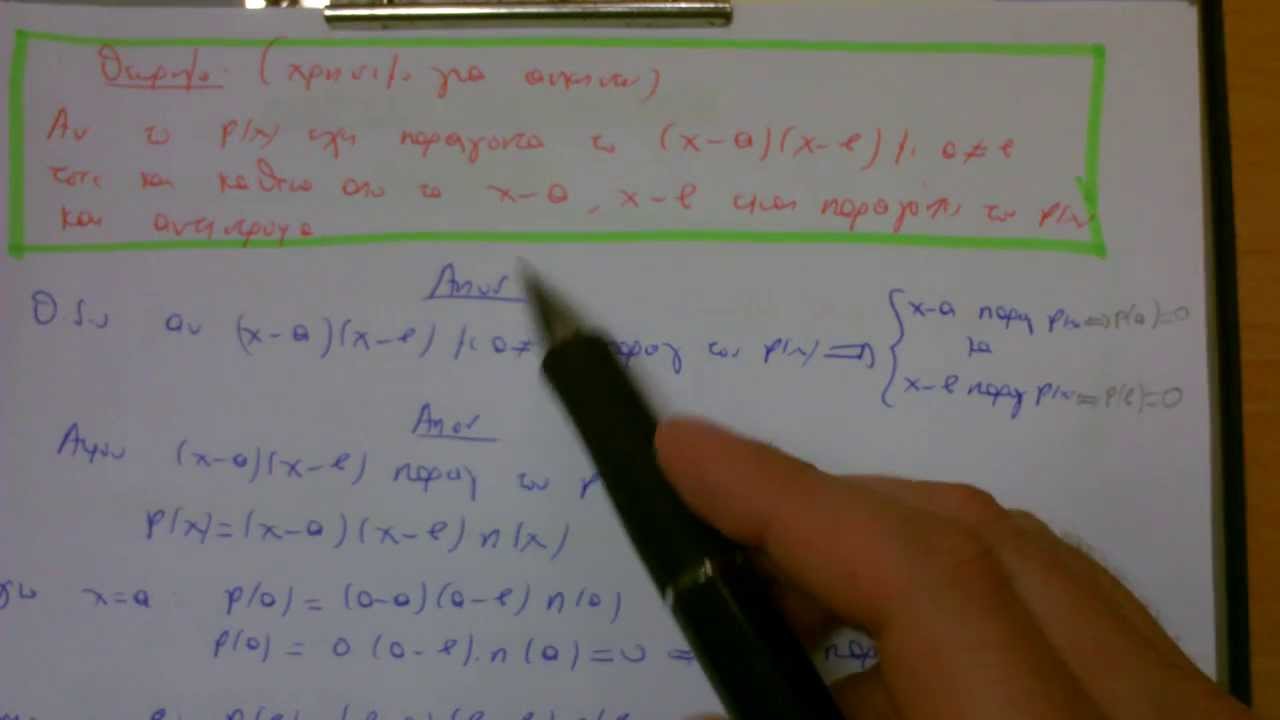 Θεωρημα (χρησιμο για ασκησεις)
Αν το P(x) εχει παραγοντα το (x-α)(x-β) με α≠β
τοτε και καθενα απο τα x-α, x-β ειναι παραγοντες του P(x)
και αντιστροφα
Αποδ
αν (x-α)(x-β) με α≠ παραγ του P(x) ⇒ { x-α παραγ P(x) ⇔ P(α)=0
και
x-β παραγ P(x) ⇔ P(β)=0
Αποδ
Αφου (x-α)(x-β) παραγ του P
P(x)=(x-α)(x-β)π(x)
για x=α P(α)=(α-α)(α-β)π(α)
P(α)=0(α-β).π(α)=0 ⇒ παρ